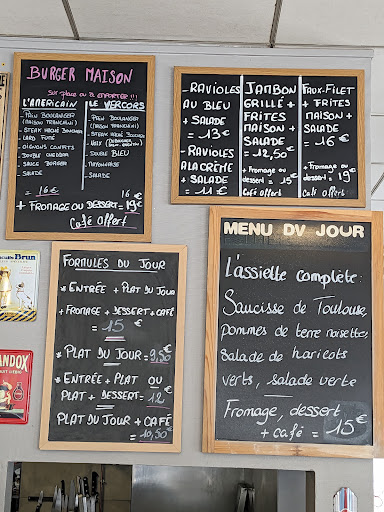 BURGER MAISON
sur place ou à emporter !!!
L'AMERICAIN
- PAIN BOULANGER
(MAISON FRANCHINI)
- STEAK HACHÉ BOUCHER
- LARD FUMÉ
- OIGNONS CONFITS
- DOUBLE CHEDDAR
- SAUCE BURGER
- SALADE
= 16 €
LE VERCORS
- PAIN BOULANGER
(MAISON FRANCHINI)
- STEAK HACHÉ BOUCHER
- DOUBLE BLEU
- MAYONNAISE
- SALADE
16 €
+ FROMAGE OU DESSERT = 19 €
Café Offert
- RAVIOLES
AU BLEU
+ SALADE
= 13 €
- RAVIOLES
A LA CRÈTE
+ SALADE
= 11 €
JAMBON
GRILLÉ +
FRITES
MAISON +
SALADE
= 12,50 €
+ Fromage ou
dessert = 15 €
Café offert
FAUX-FILET
+ FRITES
MAISON +
SALADE
= 16 €
+ Fromage ou
dessert = 19 €
Café Offert
Brun
ANDOX
FORMULES DU JOUR
* ENTRÉE + PLAT DU JOUR
+ FROMAGE + DESSERT + CAFÉ
= 15 €
* PLAT DU JOUR = 9,50 €
* ENTRÉE + PLAT OU
PLAT + DESSERT = 12 €
PLAT DU JOUR + CAFÉ
= 10,50 €
MENU DU JOUR
L'assiette complète :
Saucisse de Toulouse,
pommes de terre noisettes,
salade de haricots
verts, salade verte
Fromage, dessert
+ café = 15 €